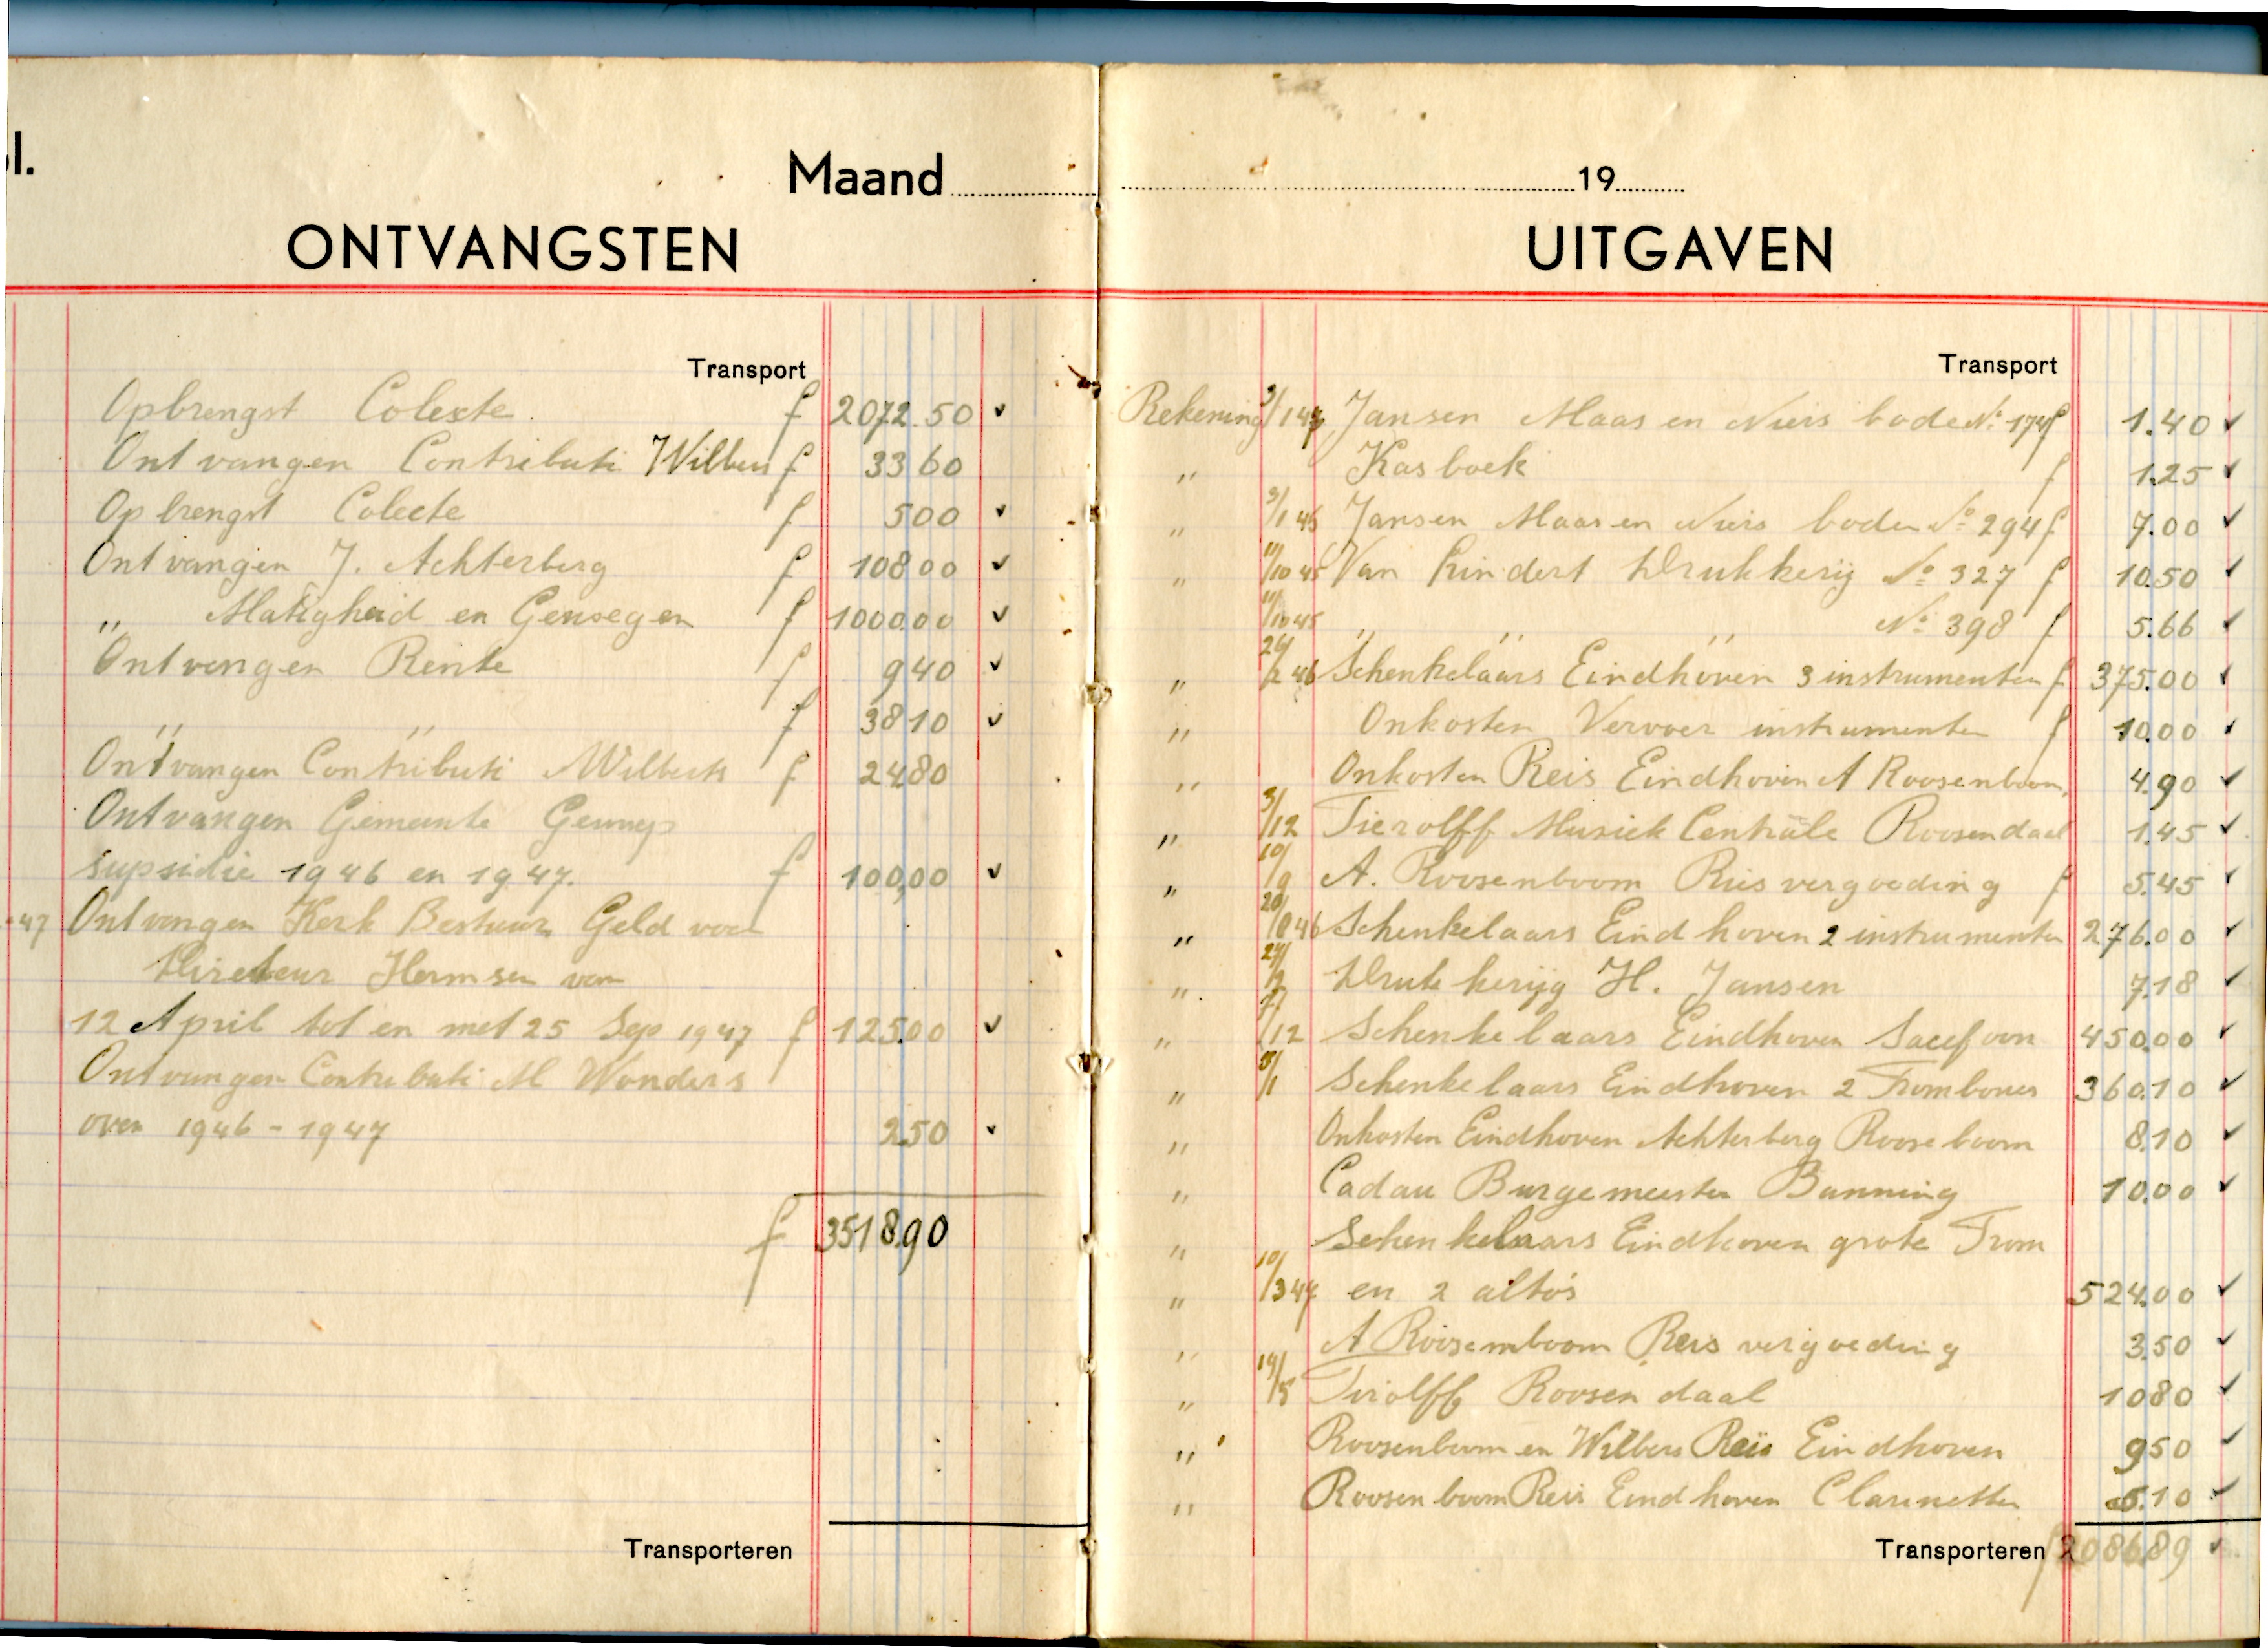 l.
Maand
ONTVANGSTEN
Transport
Opbrengst Colecte. f 2072.50 v
Ontvangen Contributi Wilbers f 33 60
Opbrengst Colecte f 5 00 v
Ontvangen J. Achterberg f 108 00 v
" Matigheid en Genoegen f 1000.00 v
Ontvangen Rente f 9 40 v
" " f 38 10 v
Ontvangen Contributi Wilbers f 24 80
Ontvangen Gemeente Gennep
supsidie 1946 en 1947. f 100,00 v
47 Ontvangen Kerk Bestuur Geld voor
Direkteur Hermsen van
12 April tot en met 25 Sep 1947 f 125.00 v
Ontvangen Contributi M Wonders
over 1946 - 1947 2.50 v
f 3518.90
Transporteren
19
UITGAVEN
Transport
Rekening 3/1 47 Jansen Maas en Niers bode No 174 f 1.40 v
" Kasboek f 1.25 v
" 3/1 46 Jansen Maas en Niers bode No 294 f 7.00 v
" 11/10 45 Van Lindert Drukkerij No 327 f 10.50 v
11/10 45 " " " No 398 f 5.66 v
" 26/2 46 Schenkelaars Eindhoven 3 instrumenten f 375.00 v
" Onkosten Vervoer instrumenten f 10.00 v
" Onkosten Reis Eindhoven A Roosenboom 4.90 v
" 3/12 Tierolff Musiek Centrale Roosendaal 1.45 v
" 10/9 A. Roosenboom Reis vergoeding f 5.45 v
" 46 Schenkelaars Eindhoven 2 instrumenten 276.00 v
" Drukkerijg H. Jansen 7.18 v
" /12 Schenkelaars Eindhoven Sacefoon 450.00 v
" /1 Schenkelaars Eindhoven 2 Trombones 360.10 v
" Onkosten Eindhoven Achterberg Rooseboom 8.10 v
" Cadau Burgemeester Banning 10.00 v
" Schenkelaars Eindhoven grote Trom
" 10/3 47 en 2 alto's 524.00 v
" A Roosemboom Reis vergoeding 3.50 v
" 19/5 Tirolff Roosendaal 10 80 v
" Roosenboom en Wilbers Reis Eindhoven 9 50 v
" Roosenboom Reis Eindhoven Clarinetten 5.10 v
Transporteren f 2086.89 v